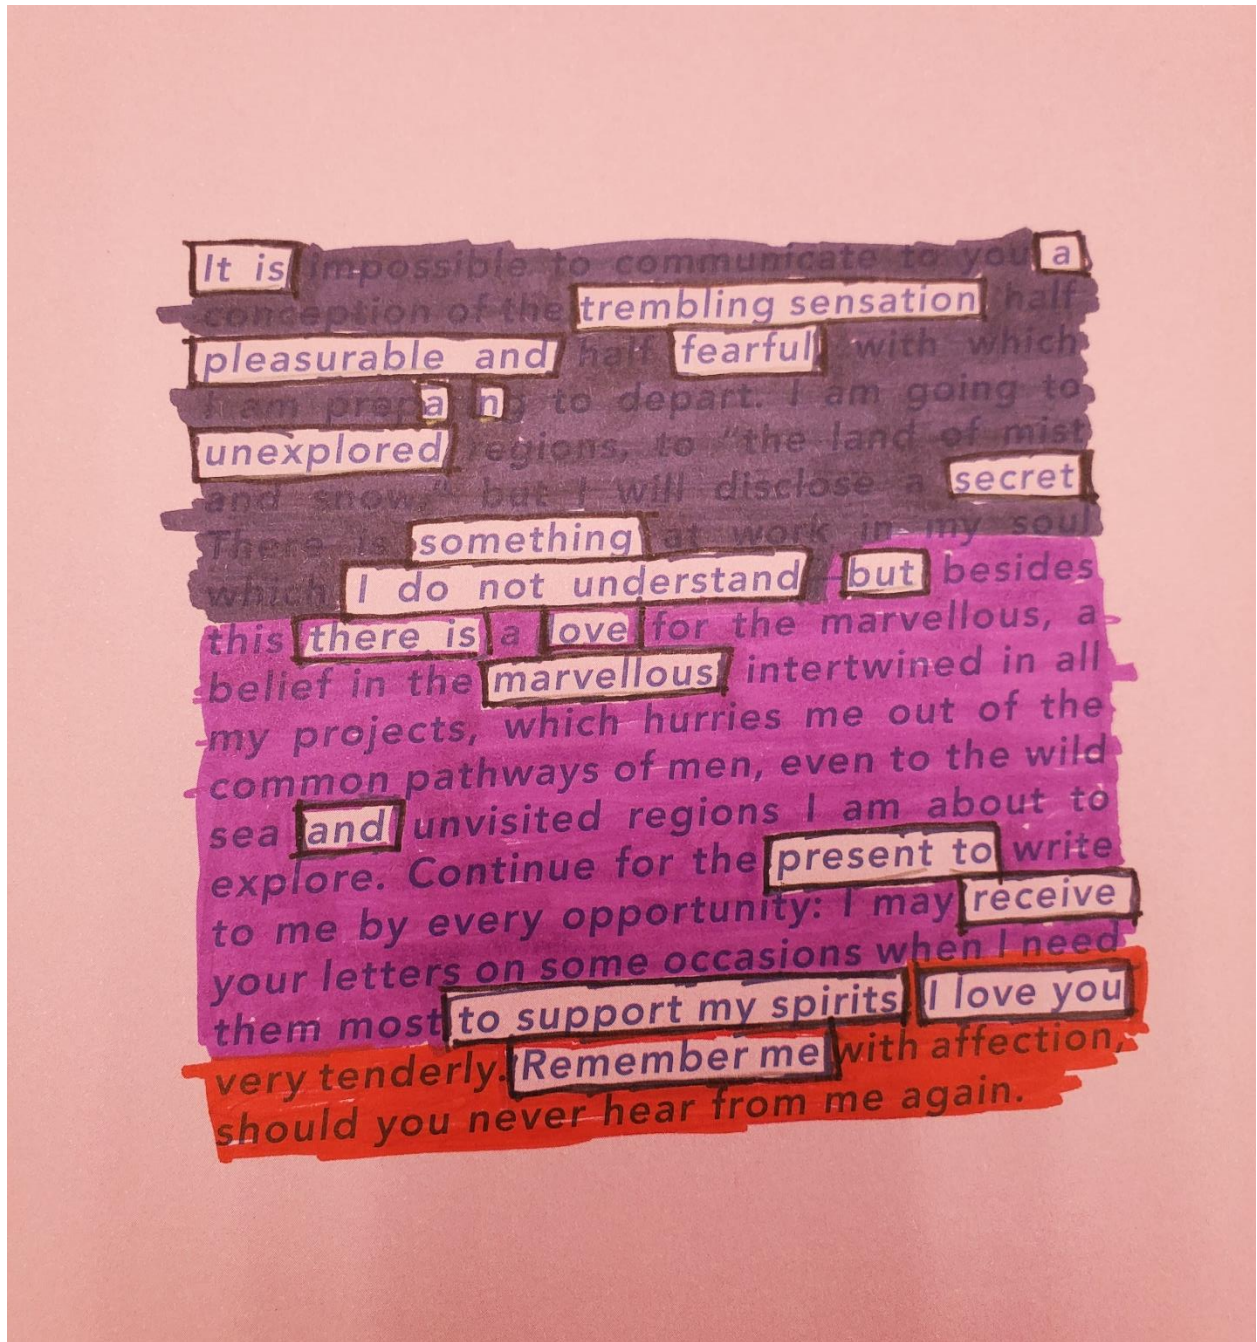 It is impossible to communicate to you a
conception of the trembling sensation half
pleasurable and half fearful with which
I am prepa n g to depart. I am going to
unexplored regions, to "the land of mist
and snow," but I will disclose a secret
There is something at work in my soul
which I do not understand but besides
this there is a love for the marvellous, a
belief in the marvellous intertwined in all
my projects, which hurries me out of the
common pathways of men, even to the wild
sea and unvisited regions I am about to
explore. Continue for the present to write
to me by every opportunity: I may receive
your letters on some occasions when I need
them most to support my spirits I love you
very tenderly. Remember me with affection,
should you never hear from me again.